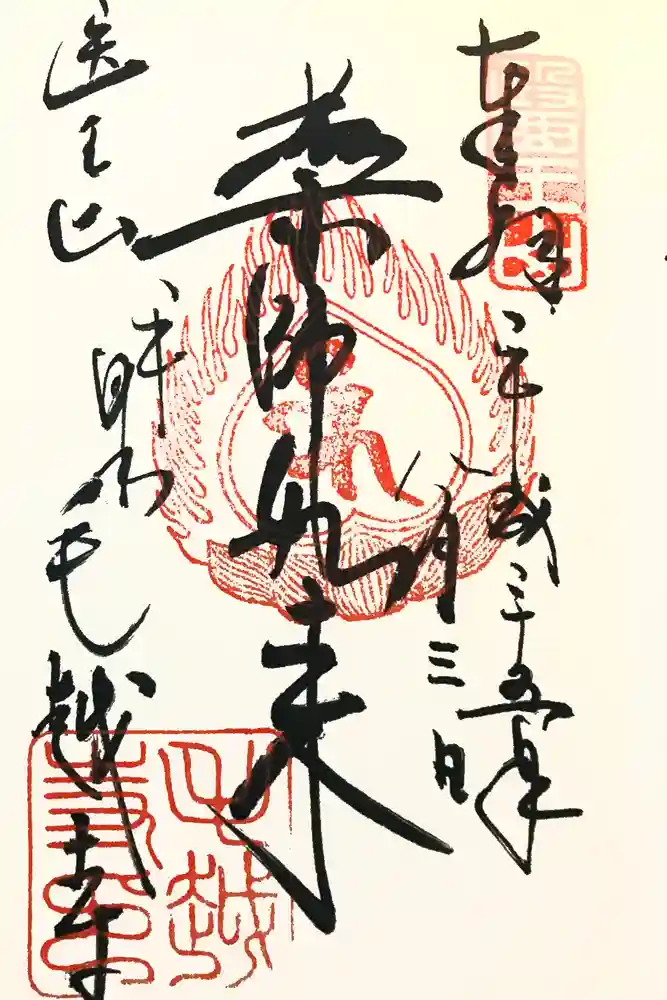 奉拝
平成二十五年
八月三日
薬師如来
医王山
毛越寺
醫王山
毛越寺印